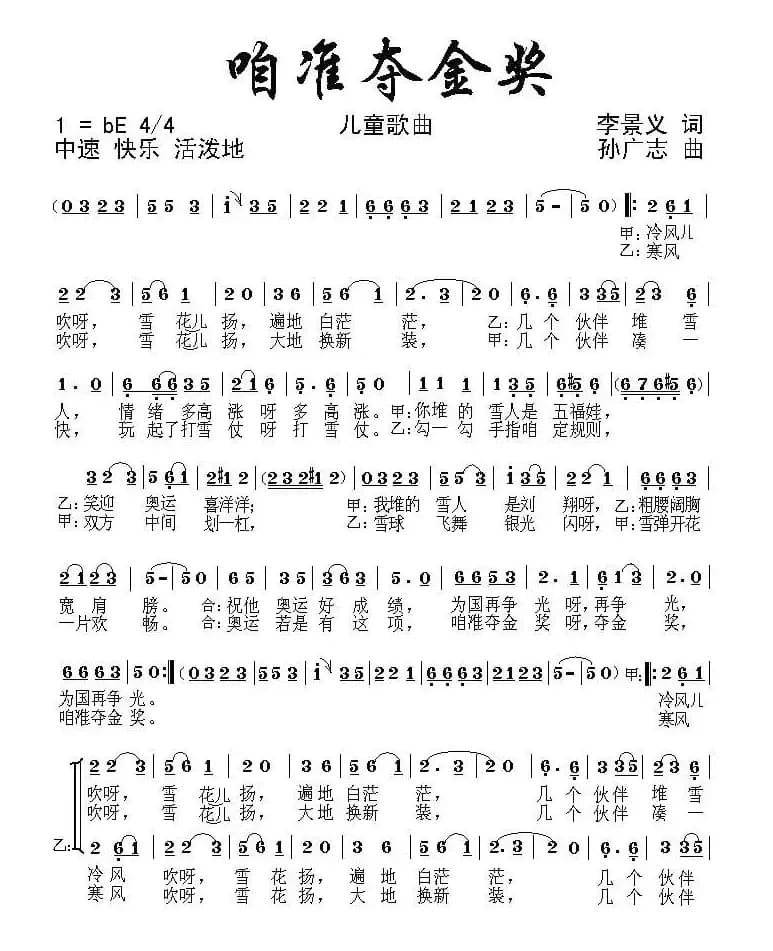 咱准夺金奖
1 = bE 4/4 儿童歌曲 李景义 词
中速 快乐 活泼地 孙广志 曲
(0 3 2 3 | 5 5 3 | i 3 5 | 2 2 1 | 6 6 6 3 | 2 1 2 3 | 5 - | 5 0) ‖: 2 6 1 |
甲:冷风儿
乙:寒风
2 2 3 | 5 6 1 | 2 0 | 3 6 | 5 6 1 | 2. 3 | 2 0 | 6. 6 | 3 3 5 | 2 3 6 |
吹呀， 雪 花儿 扬， 遍地 白茫 茫， 乙:几 个 伙伴 堆 雪
吹呀， 雪 花儿 扬， 大地 换新 装， 甲:几 个 伙伴 凑 一
1. 0 | 6 6 6 3 5 | 2 1 6 | 3. 6 | 5 0 | 1 1 1 | 1 3 5 | 6 #5 6 | (6 7 6 #5 6) |
人， 情 绪 多高 涨 呀 多 高 涨。甲:你堆 的 雪人是 五福娃，
快， 玩 起了打雪 仗 呀 打 雪 仗。乙:勾一 勾 手指咱 定规则，
3 2 3 | 5 6 1 | 2 #1 2 | (2 3 2 #1 2) | 0 3 2 3 | 5 5 3 | i 3 5 | 2 2 1 | 6 6 6 3 |
乙:笑迎 奥运 喜洋洋； 甲:我堆的 雪人 是刘 翔呀，乙:粗腰阔胸
甲:双方 中间 划一杠， 乙:雪球 飞舞 银光 闪呀，甲:雪弹开花
2 1 2 3 | 5 - | 5 0 | 6 5 | 3 5 | 3 6 3 | 5 0 | 6 6 5 3 | 2. 1 | 6 1 3 | 2. 0 |
宽 肩 膀。 合:祝他 奥运 好 成 绩， 为国再争 光 呀，再争 光，
一片欢 畅。 合:奥运 若是 有 这 项， 咱准夺金 奖 呀，夺金 奖，
6 6 6 3 | 5 0 :‖ (0 3 2 3 | 5 5 3 | i 3 5 | 2 2 1 | 6 6 6 3 | 2 1 2 3 | 5 - | 5 0) 甲:‖: 2 6 1 |
为国再争 光。 冷风儿
咱准夺金 奖。 寒风
2 2 3 | 5 6 1 | 2 0 | 3 6 | 5 6 1 | 2. 3 | 2 0 | 6. 6 | 3 3 5 | 2 3 6 |
吹呀， 雪 花儿 扬， 遍地 白茫 茫， 几 个 伙伴 堆 雪
吹呀， 雪 花儿 扬， 大地 换新 装， 几 个 伙伴 凑 一
乙: 2 6 1 | 2 2 3 | 5 6 1 | 2 0 | 3 6 | 5 6 1 | 2. 3 | 2 0 | 6. 6 | 3 3 5 |
冷 风 吹呀， 雪 花 扬， 遍 地 白茫 茫， 几 个 伙伴
寒 风 吹呀， 雪 花 扬， 大 地 换新 装， 几 个 伙伴